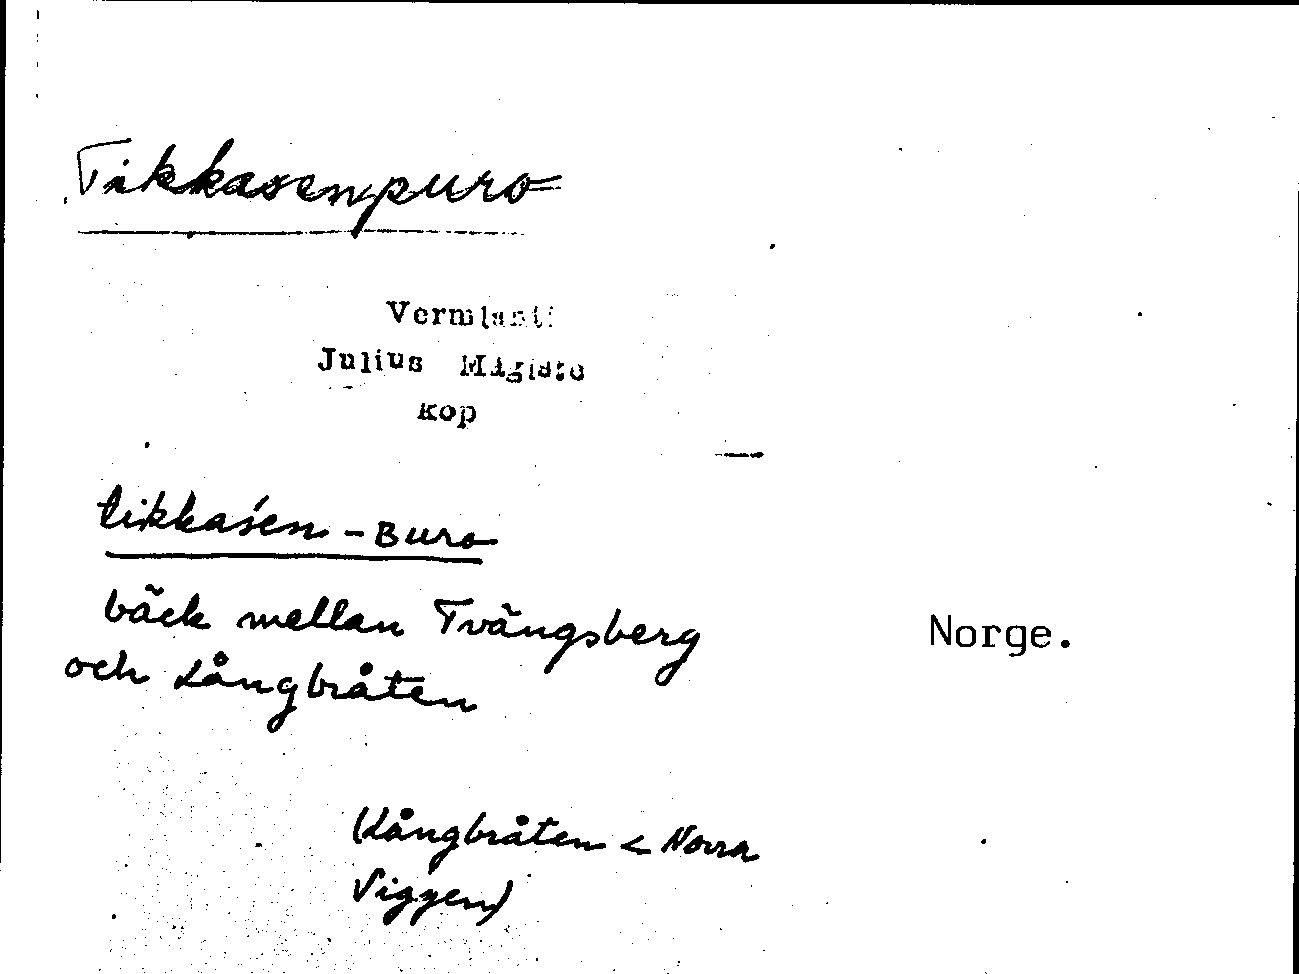 Tikkasenpuro
Vermlanti
Julius Mägiste
kop
tikkaśen - Buro
bäck mellan Tvängsberg
Norge.
och Långbråten
(Långbråten < Norra
Viggen)